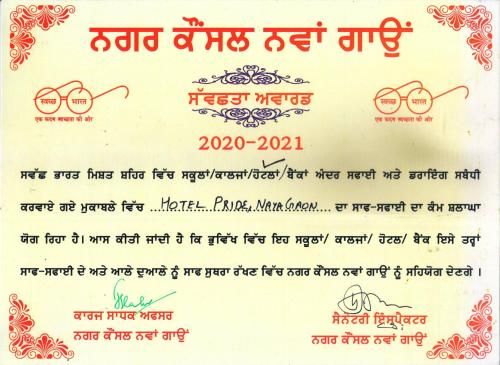 ਨਗਰ ਕੌਂਸਲ ਨਵਾਂ ਗਾਉਂ
स्वच्छ भारत
एक कदम स्वच्छता की ओर
स्वच्छ भारत
एक कदम स्वच्छता की ओर
ਸੱਵਛਤਾ ਅਵਾਰਡ
2020-2021
ਸਵੱਛ ਭਾਰਤ ਮਿਸ਼ਤ ਸ਼ਹਿਰ ਵਿੱਚ ਸਕੂਲਾਂ/ਕਾਲਜਾਂ/ਹੋਟਲਾਂ/ਬੈਂਕਾਂ ਅੰਦਰ ਸਫਾਈ ਅਤੇ ਡਰਾਇੰਗ ਸਬੰਧੀ
ਕਰਵਾਏ ਗਏ ਮੁਕਾਬਲੇ ਵਿੱਚ ....HOTEL PRIDE, NAYAGAON.... ਦਾ ਸਾਫ-ਸਫਾਈ ਦਾ ਕੰਮ ਸ਼ਲਾਘਾ
ਯੋਗ ਰਿਹਾ ਹੈ। ਆਸ ਕੀਤੀ ਜਾਂਦੀ ਹੈ ਕਿ ਭੁਵਿੱਖ ਵਿੱਚ ਇਹ ਸਕੂਲਾਂ/ ਕਾਲਜਾਂ/ ਹੋਟਲ/ ਬੈਂਕ ਇਸੇ ਤਰ੍ਹਾਂ
ਸਾਫ-ਸਫਾਈ ਦੇ ਅਤੇ ਆਲੇ ਦੁਆਲੇ ਨੂੰ ਸਾਫ ਸੁਥਰਾ ਰੱਖਣ ਵਿੱਚ ਨਗਰ ਕੌਂਸਲ ਨਵਾਂ ਗਾਉਂ ਨੂੰ ਸਹਿਯੋਗ ਦੇਣਗੇ ।
ਕਾਰਜ ਸਾਧਕ ਅਫਸਰ
ਨਗਰ ਕੌਂਸਲ ਨਵਾਂ ਗਾਉਂ
ਸੈਨਟਰੀ ਇੰਸਪੈਕਟਰ
ਨਗਰ ਕੌਂਸਲ ਨਵਾਂ ਗਾਉਂ